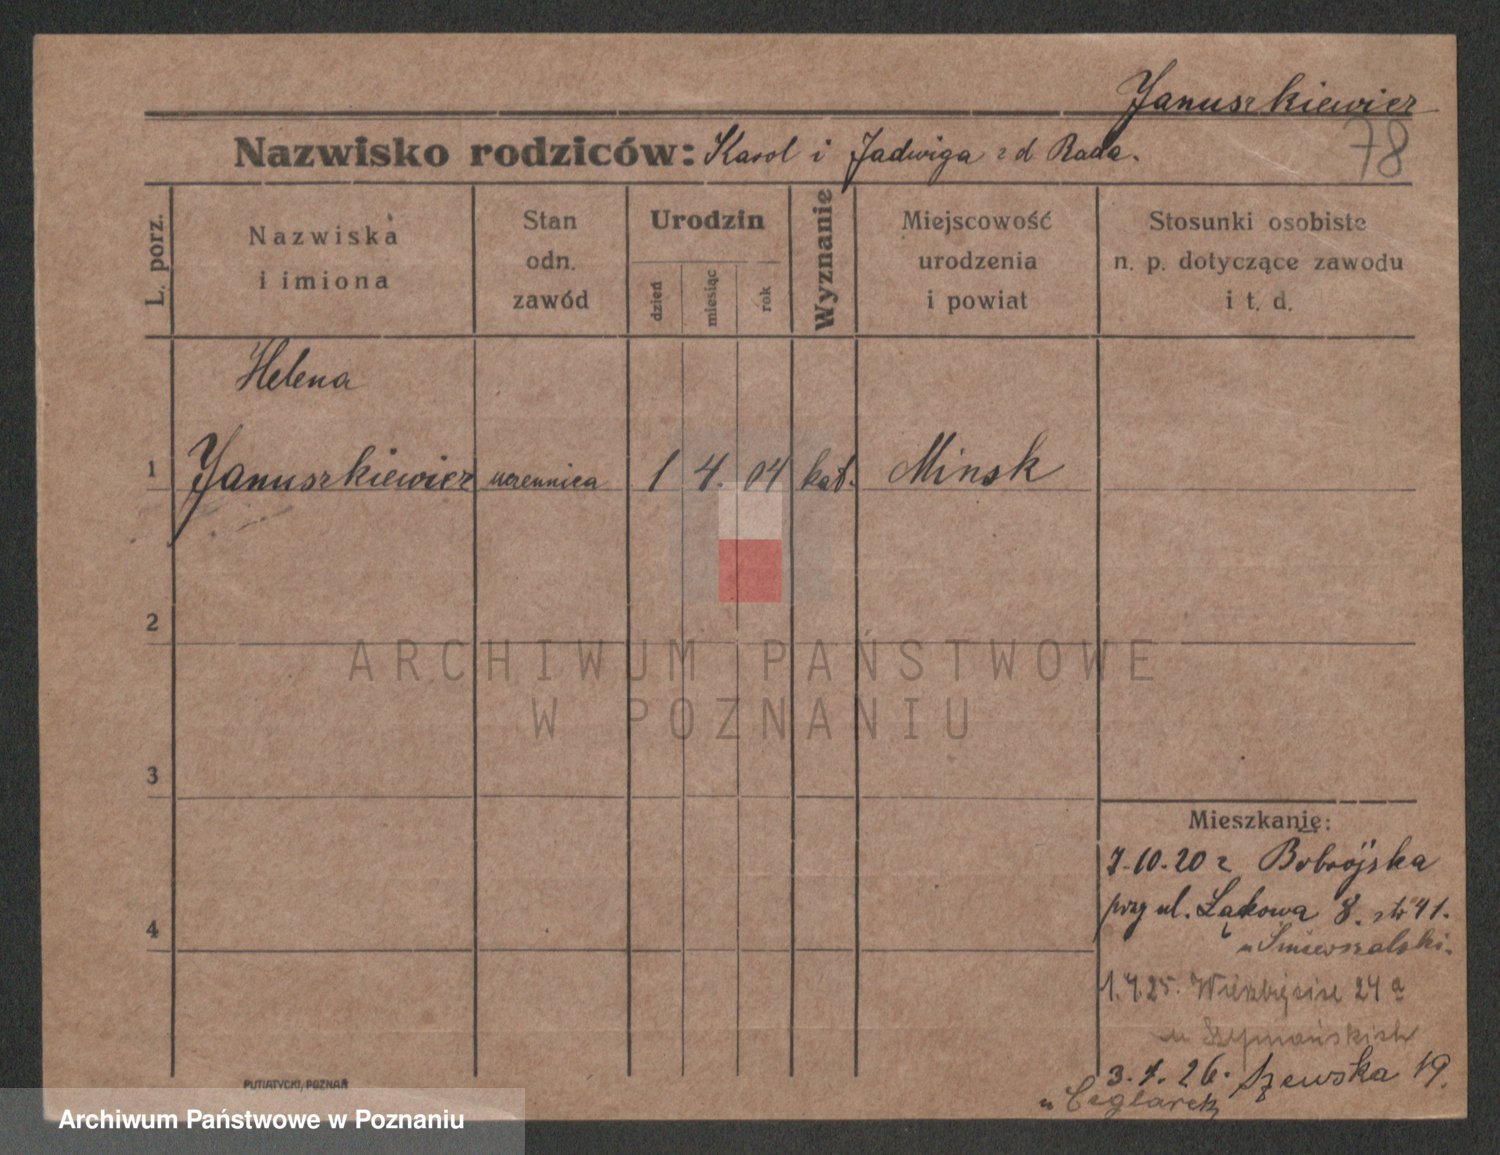 Januszkiewicz
78
Nazwisko rodziców: Karol i Jadwiga z d Rada.
L. porz.
Nazwiska
i imiona
Stan
odn.
zawód
Urodzin
dzień
miesiąc
rok
Wyznanie
Miejscowość
urodzenia
i powiat
Stosunki osobiste
n. p. dotyczące zawodu
i t. d.
Helena
1 Januszkiewicz uczennica 1 4. 04 kat. Minsk
2
ARCHIWUM PAŃSTWOWE
W POZNANIU
3
Mieszkanie:
7.10.20 z Bobrójska
przy ul. Łąkowa 8. 41.
u
4
1.4.25. 24 a
u Szymańskich
3.1.26. Szewska 19.
u Ceglarek
PUTIATYCKI, POZNAŃ
Archiwum Państwowe w Poznaniu